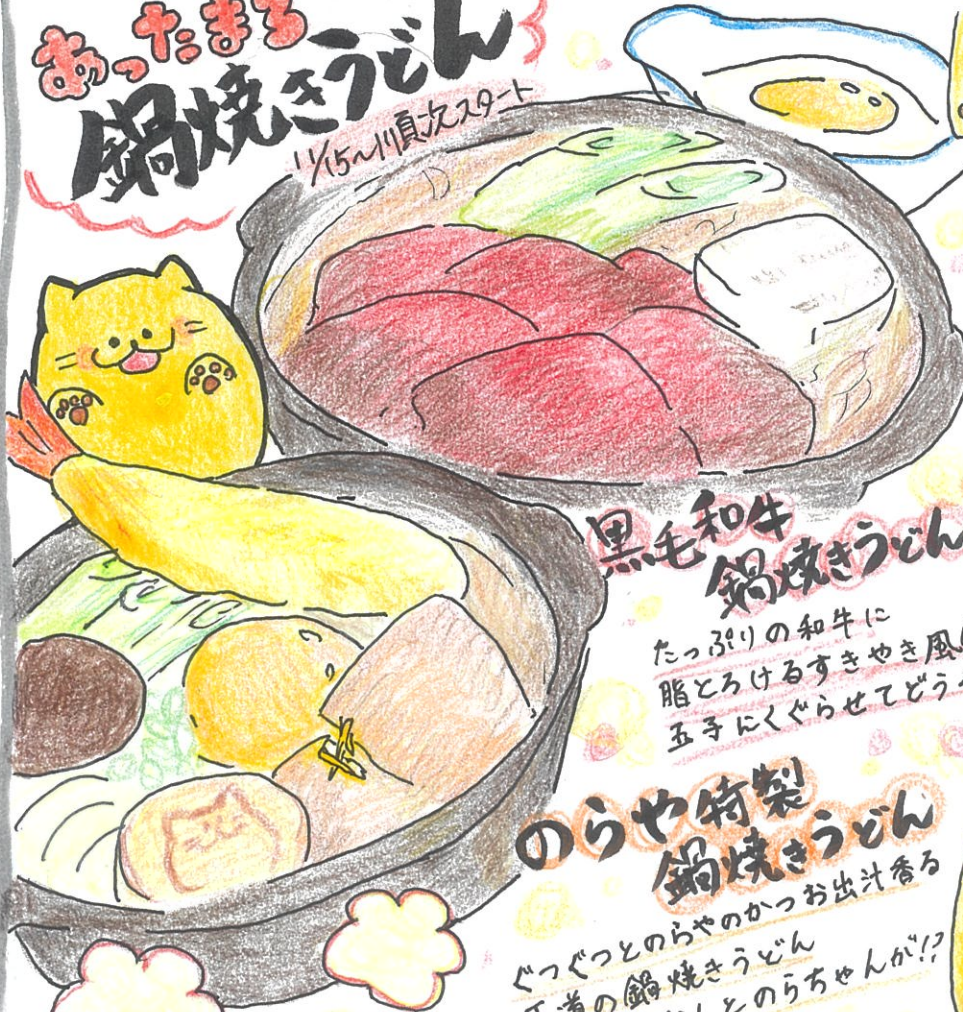 あったまる
鍋焼きうどん
11/15〜順次スタート
黒毛和牛
鍋焼きうどん
たっぷりの和牛に
脂とろけるすきやき風
玉子にくぐらせてどう
のらや特製
鍋焼きうどん
ぐつぐつとのらやのかつお出汁香る
道の鍋焼きうどん
とのらちゃんが!?